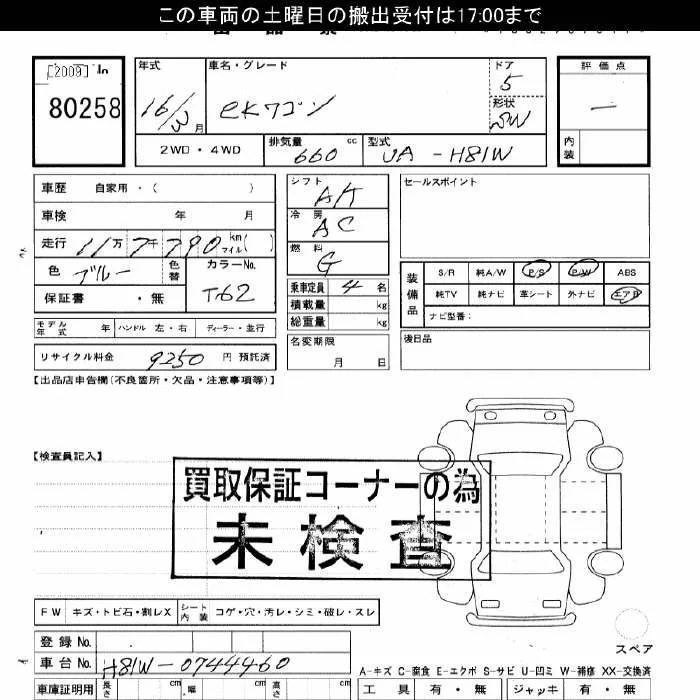 この車両の土曜日の搬出受付は17:00まで
[2009]
80258
年式
16/3月
車名・グレード
eKワゴン
ドア
5
形状
SW
評価点
—
内装
2WD・4WD
排気量
660 cc
型式
UA-H81W
車歴 自家用・( )
車検 年 月
走行 11万7千790 km マイル( )
色 ブルー
色替
カラーNo.
T62
保証書 ・無
モデル年式 年 ハンドル 左・右 ディーラー・並行
リサイクル料金 9250 円 預託済
シフト
AT
冷房
AC
燃料
G
乗車定員 4 名
積載量 kg
総重量 kg
名変期限
月 日
セールスポイント
装備品
S/R 純A/W P/S P/W ABS
純TV 純ナビ 革シート 外ナビ エアB
ナビ型番:
後日品
【出品店申告欄(不良箇所・欠品・注意事項等)】
【検査員記入】
買取保証コーナーの為
未検査
FW キズ・トビ石・割レX シート内装 コゲ・穴・汚レ・シミ・破レ・スレ
スペア
登録No.
車台No. H81W-0744460
A-キズ C-腐食 E-エクボ S-サビ U-凹ミ W-補修 XX-交換済
車庫証明用 長さ cm 幅 cm 高さ cm
工具 有・無 ジャッキ 有・無